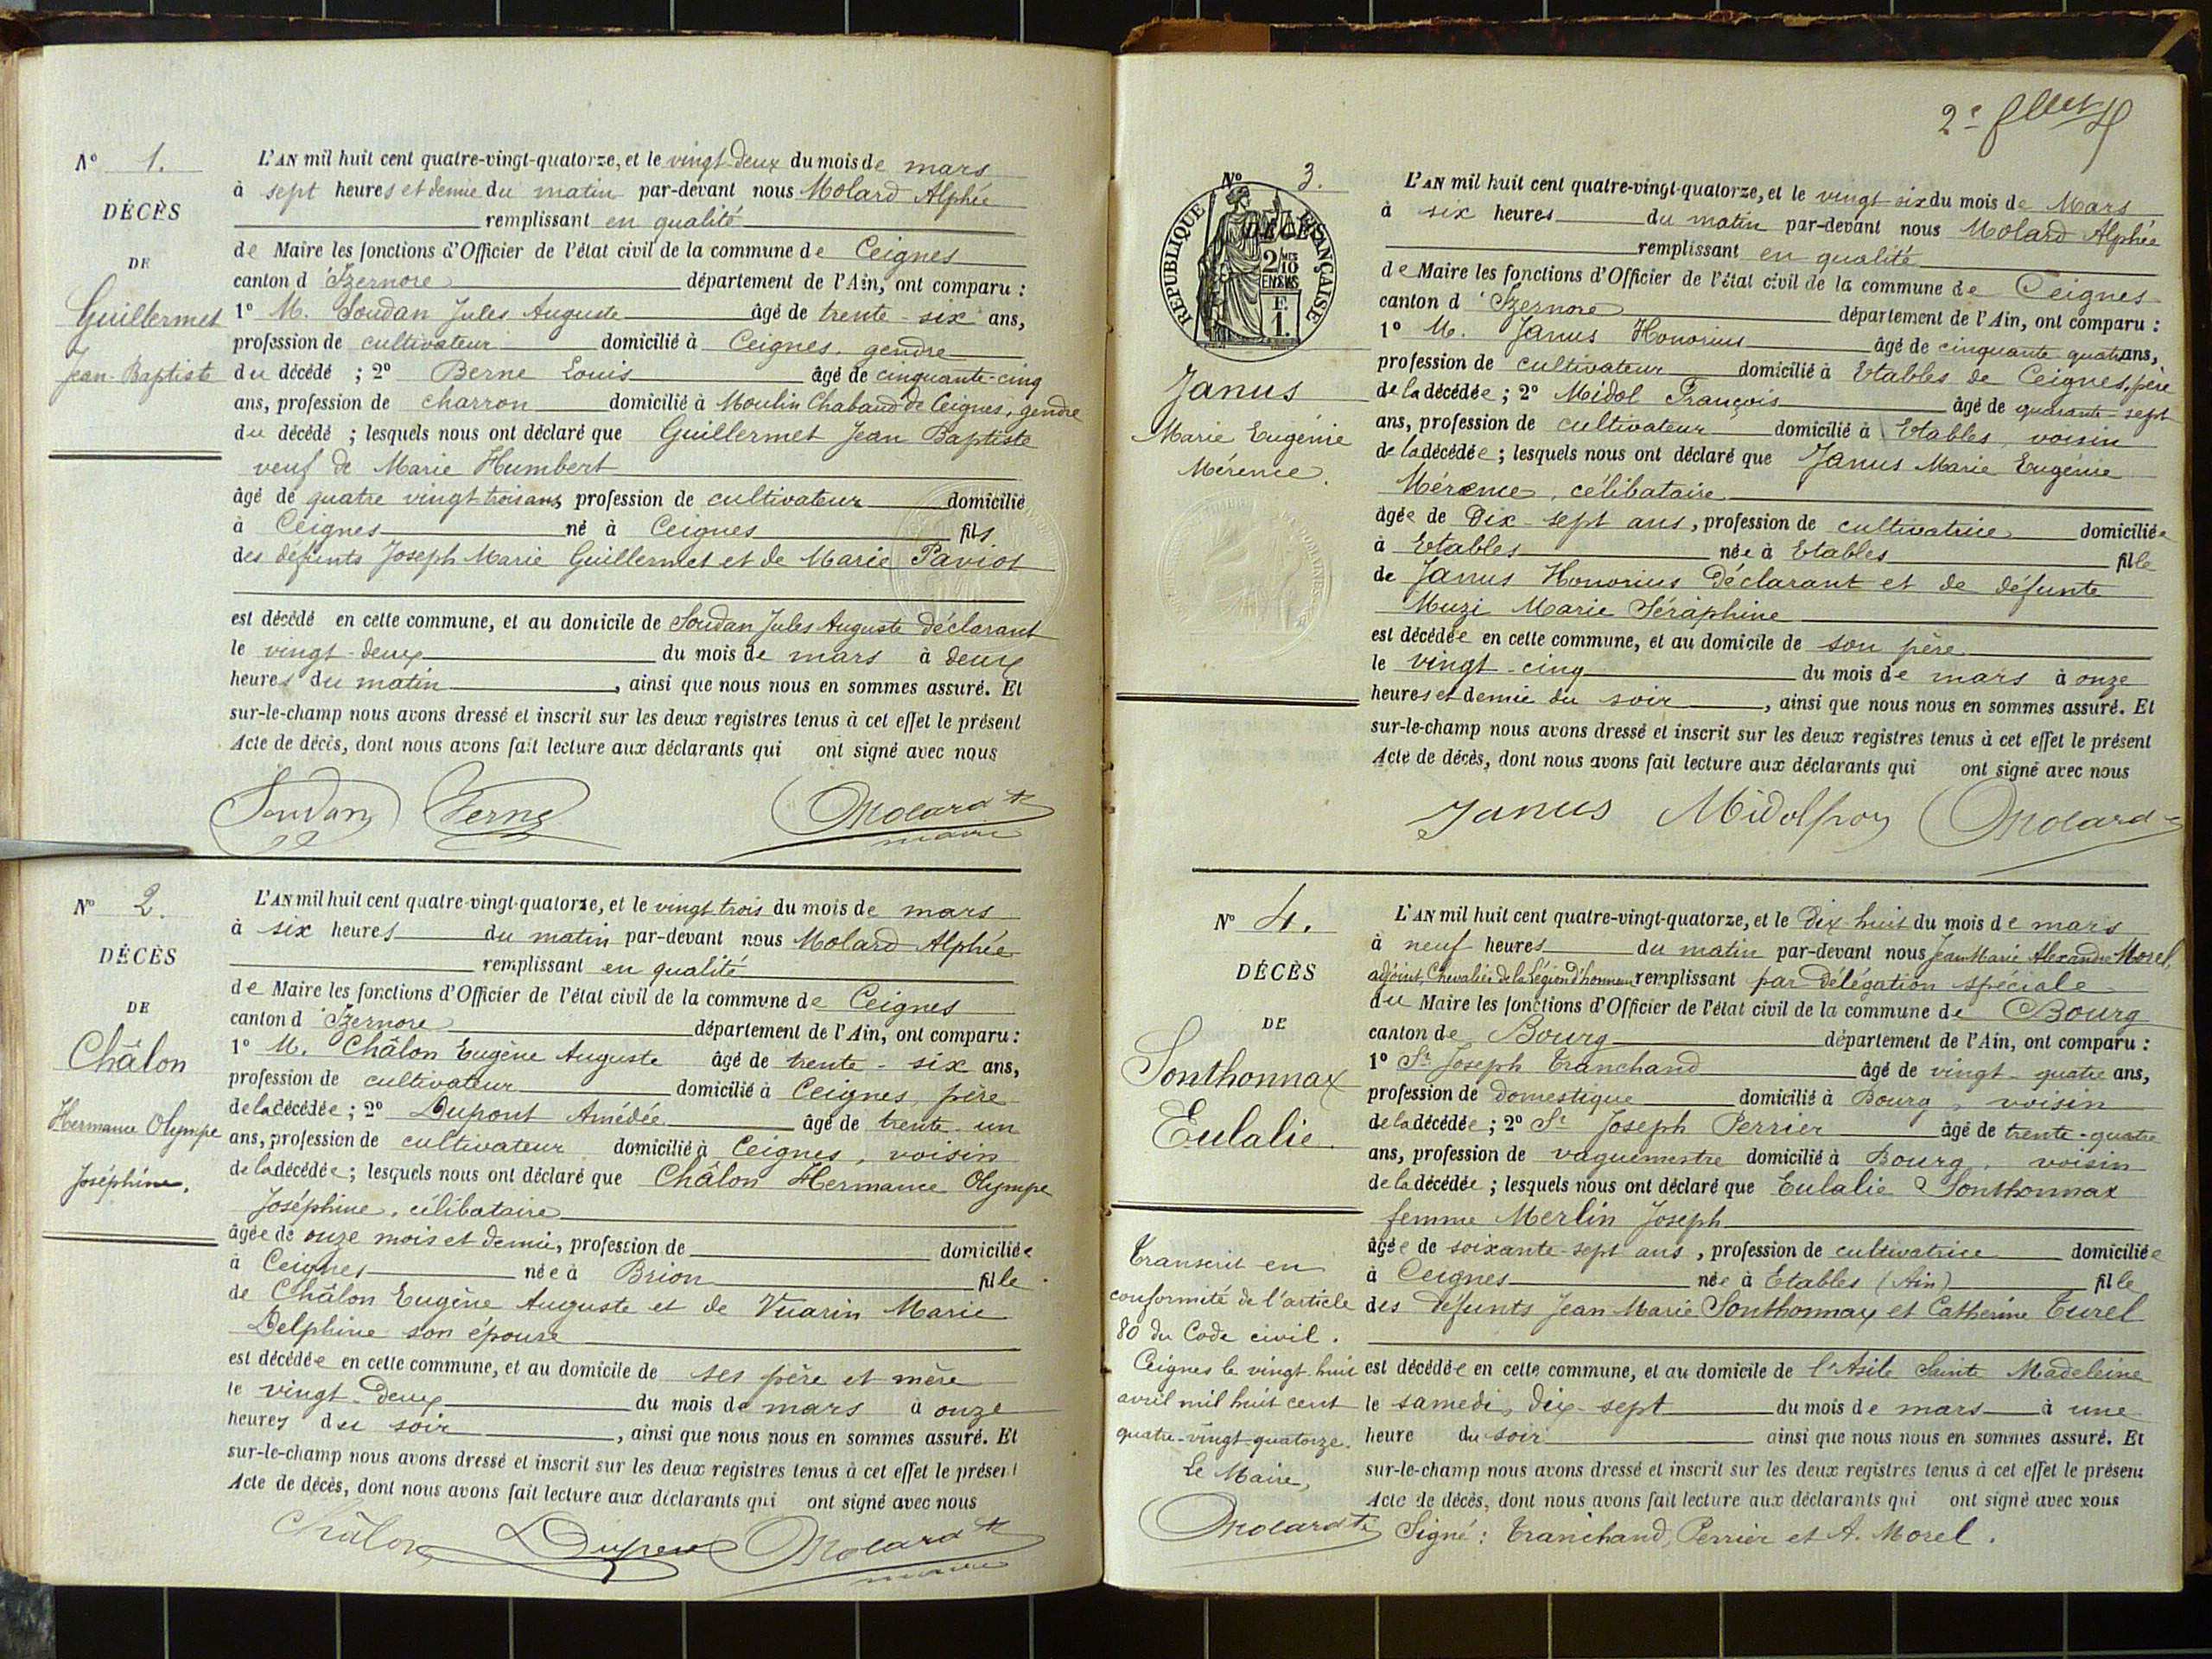 N° 1.
DÉCÈS
DE
Guillermet
Jean-Baptiste
L'AN mil huit cent quatre-vingt-quatorze, et le vingt-deux du mois de mars
à sept heures et demie du matin par-devant nous Molard Alphée
remplissant en qualité
de Maire les fonctions d'Officier de l'état civil de la commune de Ceignes
canton d'Izernore département de l'Ain, ont comparu :
1° M. Soudan Jules Auguste âgé de trente-six ans,
profession de cultivateur domicilié à Ceignes, gendre
du décédé ; 2° Berne Louis âgé de cinquante-cinq
ans, profession de charron domicilié à Moulin Chabaud de Ceignes, gendre
du décédé ; lesquels nous ont déclaré que Guillermet Jean Baptiste
veuf de Marie Humbert
âgé de quatre vingt trois ans, profession de cultivateur domicilié
à Ceignes né à Ceignes fils
des défunts Joseph Marie Guillermet et de Marie Paviot
est décédé en cette commune, et au domicile de Soudan Jules Auguste déclarant
le vingt-deux du mois de mars à deux
heures du matin, ainsi que nous nous en sommes assuré. Et
sur-le-champ nous avons dressé et inscrit sur les deux registres tenus à cet effet le présent
Acte de décès, dont nous avons fait lecture aux déclarants qui ont signé avec nous
Soudan Berne Molard
maire
N° 2.
DÉCÈS
DE
Châlon
Hermance Olympe
Joséphine.
L'AN mil huit cent quatre-vingt-quatorze, et le vingt trois du mois de mars
à six heures du matin par-devant nous Molard Alphée
remplissant en qualité
de Maire les fonctions d'Officier de l'état civil de la commune de Ceignes
canton d'Izernore département de l'Ain, ont comparu :
1° M. Châlon Eugène Auguste âgé de trente-six ans,
profession de cultivateur domicilié à Ceignes, père
de la décédée ; 2° Dupont Amédée âgé de trente-un
ans, profession de cultivateur domicilié à Ceignes, voisin
de la décédée ; lesquels nous ont déclaré que Châlon Hermance Olympe
Joséphine, célibataire
âgée de onze mois et demie, profession de domiciliée
à Ceignes née à Brion fille
de Châlon Eugène Auguste et de Vuarin Marie
Delphine son épouse
est décédée en cette commune, et au domicile de ses père et mère
le vingt-deux du mois de mars à onze
heures du soir, ainsi que nous nous en sommes assuré. Et
sur-le-champ nous avons dressé et inscrit sur les deux registres tenus à cet effet le présent
Acte de décès, dont nous avons fait lecture aux déclarants qui ont signé avec nous
Châlon Dupont Molard
maire
2e fllet
N° 3.
DÉCÈS
RÉPUBLIQUE FRANÇAISE
2/10 EN SUS
F. 1.
Janus
Marie Eugénie
Mérence.
L'AN mil huit cent quatre-vingt-quatorze, et le vingt-six du mois de Mars
à six heures du matin par-devant nous Molard Alphée
remplissant en qualité
de Maire les fonctions d'Officier de l'état civil de la commune de Ceignes
canton d'Izernore département de l'Ain, ont comparu :
1° M. Janus Honorius âgé de cinquante-quatre ans,
profession de cultivateur domicilié à Etables de Ceignes, père
de la décédée ; 2° Midol François âgé de quarante-sept
ans, profession de cultivateur domicilié à Etables, voisin
de la décédée ; lesquels nous ont déclaré que Janus Marie Eugénie
Mérence, célibataire
âgée de Dix-sept ans, profession de cultivatrice domiciliée
à Etables née à Etables fille
de Janus Honorius déclarant et de défunte
Muzi Marie Séraphine
est décédée en cette commune, et au domicile de son père
le vingt-cinq du mois de mars à onze
heures et demie du soir, ainsi que nous nous en sommes assuré. Et
sur-le-champ nous avons dressé et inscrit sur les deux registres tenus à cet effet le présent
Acte de décès, dont nous avons fait lecture aux déclarants qui ont signé avec nous
Janus Midol fçois Molard
N° 4.
DÉCÈS
DE
Sonthonnax
Eulalie.
Transcrit en
conformité de l'article
80 du Code civil.
Ceignes le vingt-huit
avril mil huit cent
quatre-vingt-quatorze.
Le Maire,
Molard
L'AN mil huit cent quatre-vingt-quatorze, et le Dix-huit du mois de mars
à neuf heures du matin par-devant nous Jean Marie Alexandre Morel,
adjoint, Chevalier de la Légion d'honneur remplissant par délégation spéciale
du Maire les fonctions d'Officier de l'état civil de la commune de Bourg
canton de Bourg département de l'Ain, ont comparu :
1° Sr Joseph Tranchand âgé de vingt-quatre ans,
profession de domestique domicilié à Bourg, voisin
de la décédée ; 2° Sr Joseph Perrier âgé de trente-quatre
ans, profession de vaguemestre domicilié à Bourg, voisin
de la décédée ; lesquels nous ont déclaré que Eulalie Sonthonnax
femme Merlin Joseph
âgée de soixante-sept ans, profession de cultivatrice domiciliée
à Ceignes née à Etables (Ain) fille
des défunts Jean Marie Sonthonnax et Catherine Turel
est décédée en cette commune, et au domicile de l'Asile Sainte Madeleine
le samedi, dix-sept du mois de mars à une
heure du soir ainsi que nous nous en sommes assuré. Et
sur-le-champ nous avons dressé et inscrit sur les deux registres tenus à cet effet le présent
Acte de décès, dont nous avons fait lecture aux déclarants qui ont signé avec nous
Signé : Tranchand, Perrier et A. Morel.